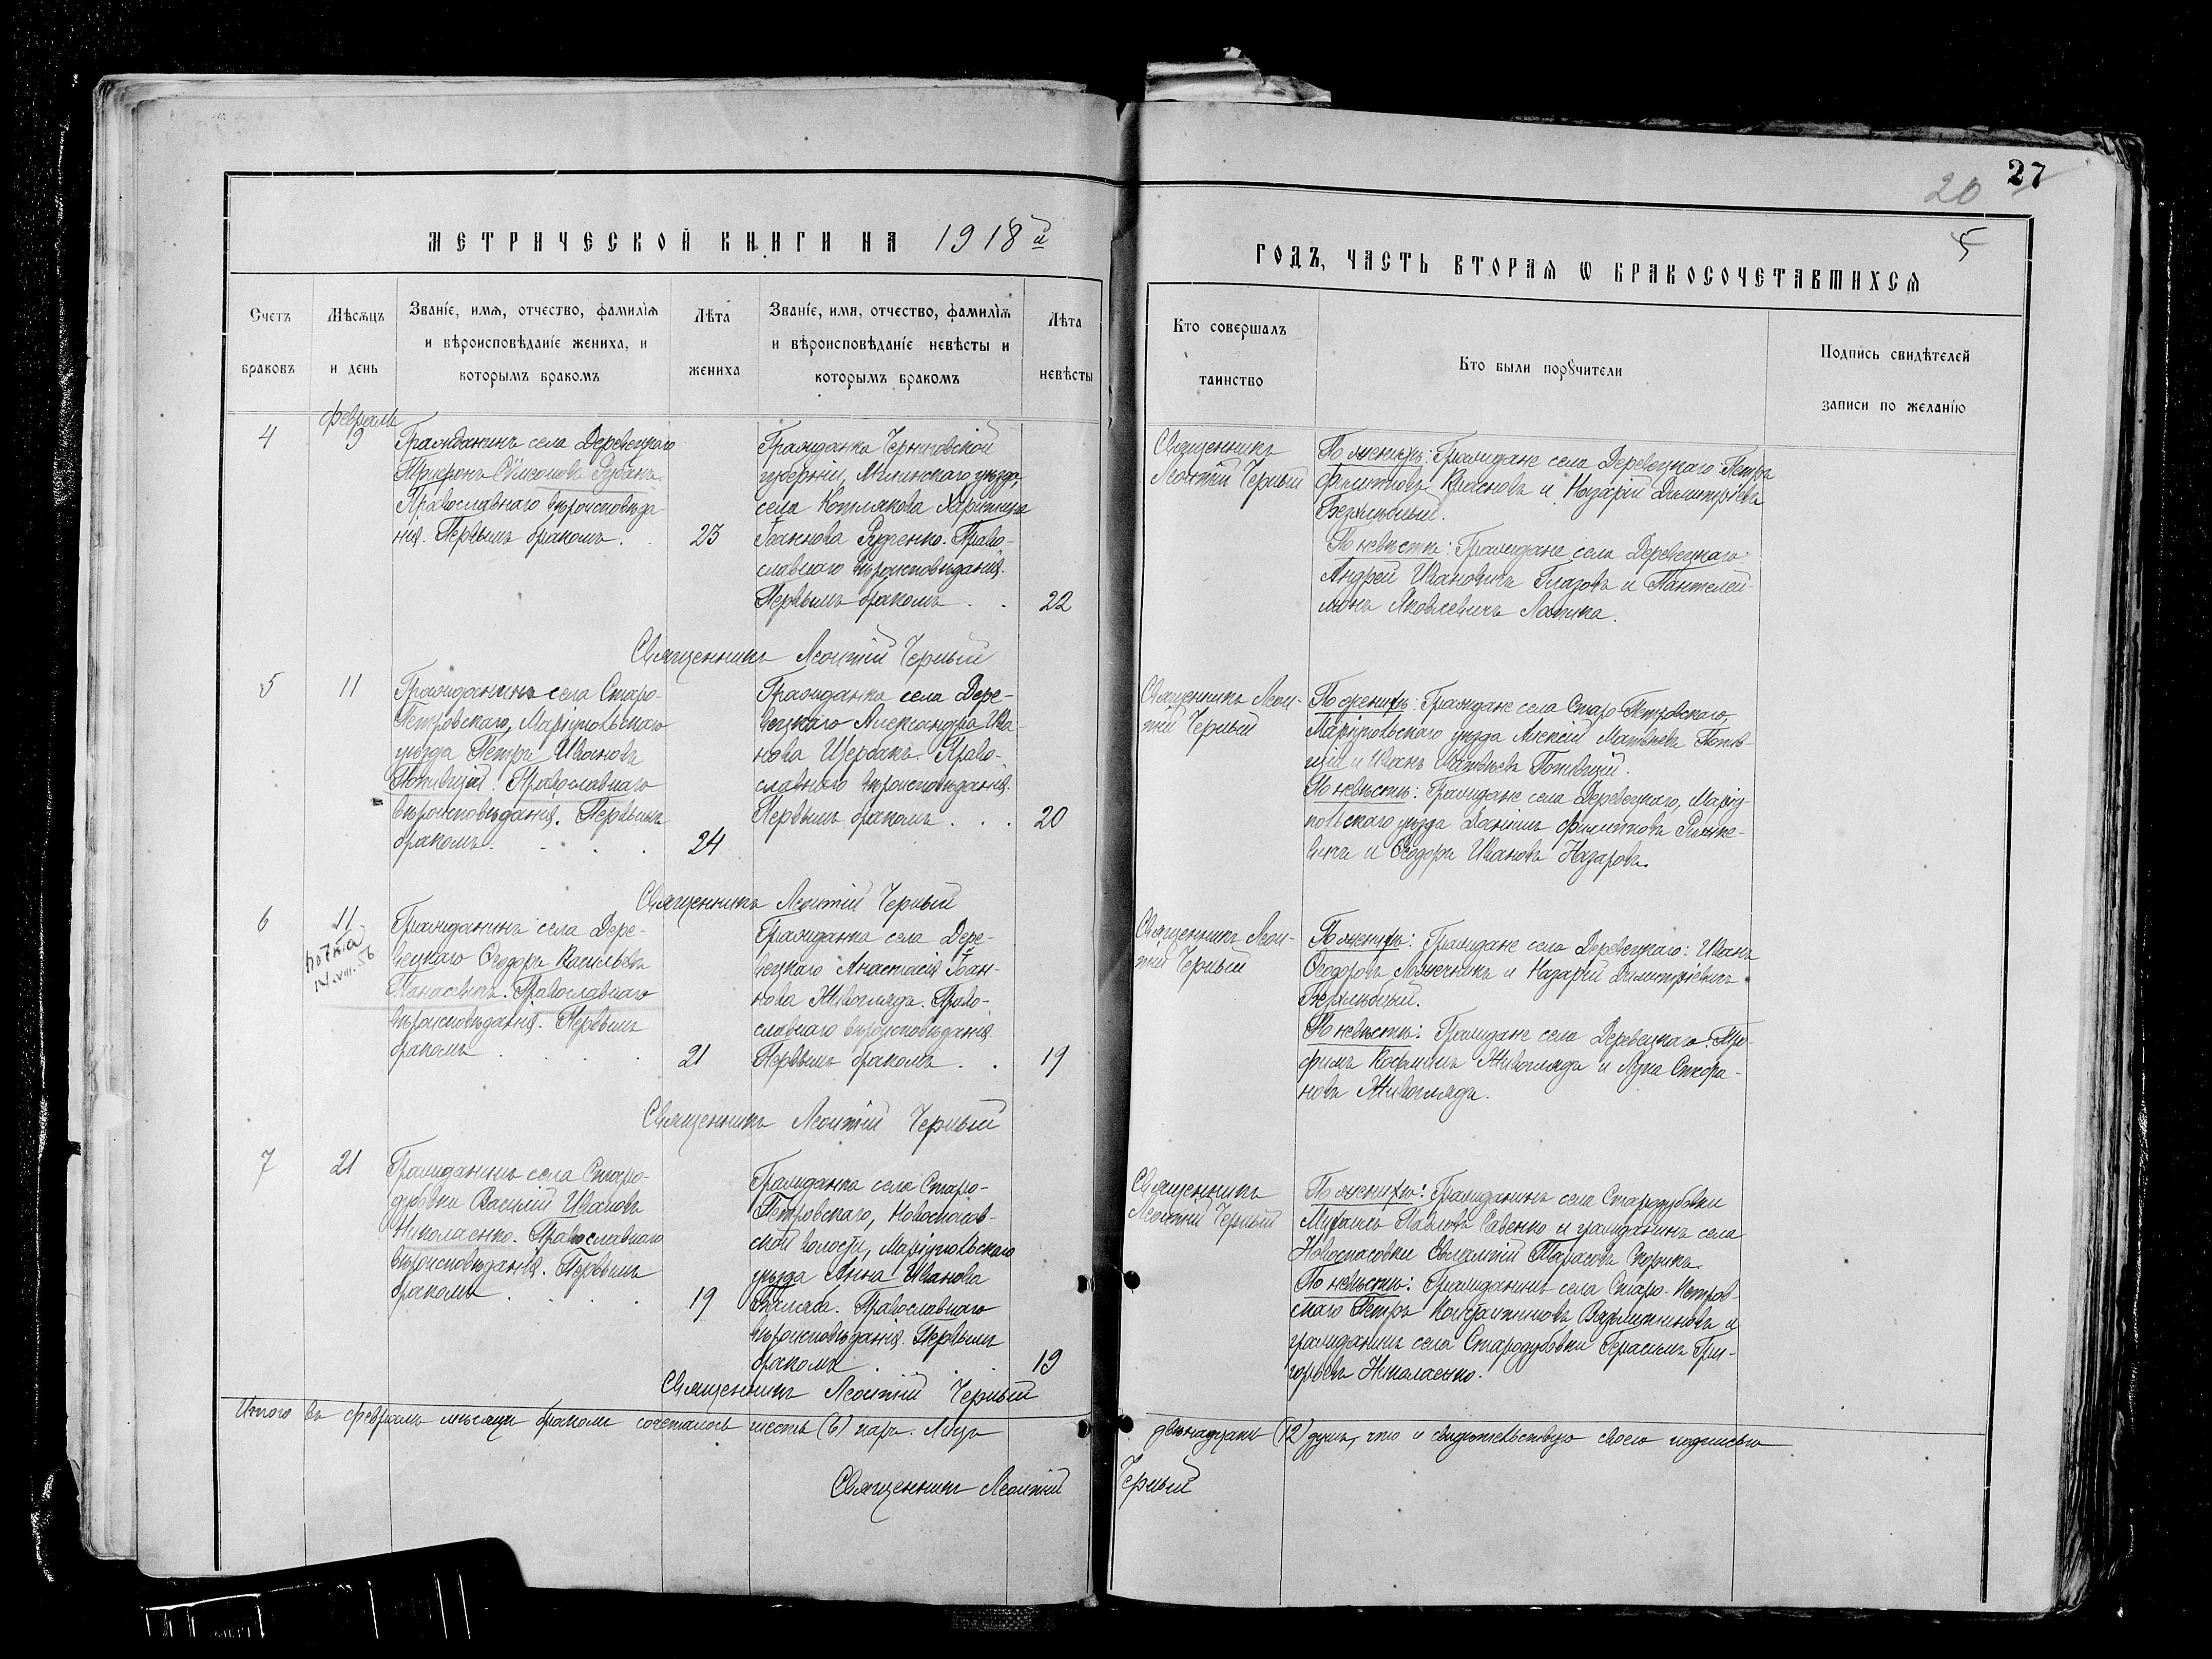 27
20
5
МЕТРИЧЕСКОЙ КНИГИ НА 1918й
ГОДЪ, ЧАСТЬ ВТОРАЯ Ѡ БРАКОСОЧЕТАВШИХСЯ
Счетъ
браковъ
Мѣсяцъ
и день
Званіе, имя, отчество, фамилія
и вѣроисповѣданіе жениха, и
которымъ бракомъ
Лѣта
жениха
Званіе, имя, отчество, фамилія
и вѣроисповѣданіе невѣсты и
которымъ бракомъ
Лѣта
невѣсты
Кто совершалъ
таинство
Кто были порꙋчители
Подпись свидѣтелей
записи по желанію
февраль
4
9
Гражданинъ села Деревецкаго
Рубанъ.
Православнаго вѣроисповѣда
нія. Первымъ бракомъ.
23
Гражданка Черниговской
губерніи, Мглинскаго уѣзда,
села Котлякова Харитина
Іоаннова Рудченко. Право-
славнаго вѣроисповѣданія.
Первымъ бракомъ . .
22
Священникъ
Леонтій Черный
По женихѣ: Граждане села Деревецкаго Петръ
Филиповъ Власновъ и Назарій Димитріевъ
Безхлѣбный.
По невѣстѣ: Граждане села Деревецкаго
Андрей Ивановичъ Глазовъ и Пантелей-
монъ Яковлевичъ
Священникъ Леонтій Черный
5
11
Гражданинъ села Старо-
Петровскаго, Маріупольскаго
уѣзда Петръ Ивановъ
Православнаго
вѣроисповѣданія. Первымъ
бракомъ . . .
24
Гражданка села Дере-
вецкаго Александра Ива-
нова Щербакъ. Право-
славнаго вѣроисповѣданія.
Первымъ бракомъ . . .
20
Священникъ Леон-
тій Черный
По женихѣ: Граждане села Старо-Петровскаго,
Маріупольскаго уѣзда Алексій Матвѣевъ
и Иванъ Матвѣевъ
По невѣстѣ: Граждане села Деревецкаго, Маріу-
польскаго уѣзда Даніилъ Филиповъ
и Ѳеодоръ Ивановъ Назаровъ.
Священникъ Леонтій Черный
6
11
VIII.56
Гражданинъ села Дере-
вецкаго Ѳеодоръ Васильевъ
Панасенко. Православнаго
вѣроисповѣданія. Первымъ
бракомъ . . . .
21
Гражданка села Дере-
вецкаго Анастасія Іоан-
нова Живогляда. Право-
славнаго вѣроисповѣданія.
Первымъ бракомъ . .
19
Священникъ Леон-
тій Черный
По женихѣ: Граждане села Деревецкаго: Иванъ
Ѳеодоровъ и Назарій Димитріевичъ
Безхлѣбный.
По невѣстѣ: Граждане села Деревецкаго: Тро-
фимъ Живогляда и Лука Стефа-
новъ Живогляда.
Священникъ Леонтій Черный
7
21
Гражданинъ села Старо-
дубовки Василій Ивановъ
Николаенко. Православнаго
вѣроисповѣданія. Первымъ
бракомъ . . . .
19
Гражданка села Старо-
Петровскаго, Новоспасов-
ской волости, Маріупольскаго
уѣзда Анна Иванова
Православнаго
вѣроисповѣданія. Первымъ
бракомъ . . .
19
Священникъ
Леонтій Черный
По женихѣ: Гражданинъ села Стародубовки
Михаилъ Павловъ Савенко и гражданинъ села
Новоспасовки Евлампій Тарасовъ
По невѣстѣ: Гражданинъ села Старо-Петров-
скаго Петръ Константиновъ и
гражданинъ села Стародубовки Герасимъ Гри-
горьевъ Николаенко.
Священникъ Леонтій Черный
Итого въ февралѣ мѣсяцѣ бракомъ сочеталось шесть (6) паръ. Лицъ
двѣнадцать (12) душъ, что и свидѣтельствую своею подписью
Священникъ Леонтій
Черный